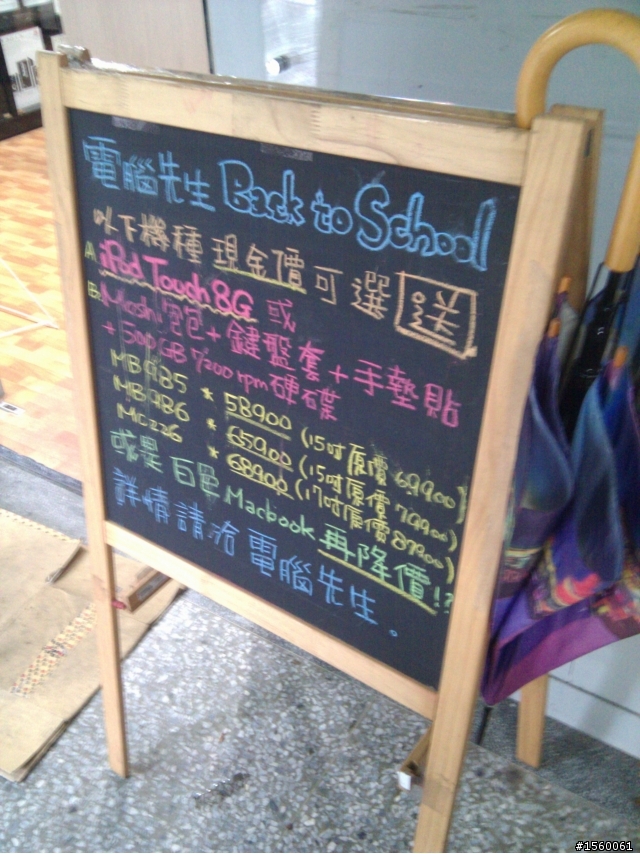 電腦先生 Back to School
以下機種 現金價可選 送
A. iPod Touch 8G 或
B. Moshi 包包 + 鍵盤套 + 手墊貼
+ 500GB 7200 rpm 硬碟
MB985 * 58900 (15吋 原價 69900)
MB986 * 65900 (15吋 原價 79900)
MC226 * 68900 (17吋 原價 87900)
或是 白 Macbook 再降價!?
詳情請洽 電腦先生。
#1560061